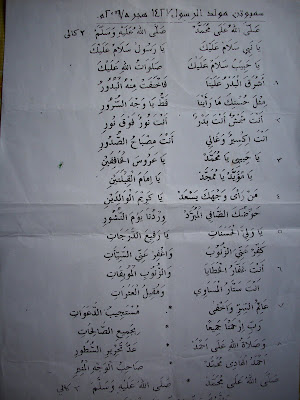 سمبوتن مولد الرسول ١٤٣٠ هجره/٢٠٠٩م.
صَلَّى اللهُ عَلَى مُحَمَّدْ صَلَّى اللهُ عَلَيْهِ وَسَلَّمْ ٢ كالي
يَا نَبِي سَلَامْ عَلَيْكَ يَا رَسُولْ سَلَامْ عَلَيْكَ ١
يَا حَبِيبْ سَلَامْ عَلَيْكَ صَلَوَاتُ اللهِ عَلَيْكَ
أَشْرَقَ الْبَدْرُ عَلَيْنَا فَاخْتَفَتْ مِنْهُ الْبُدُورُ
مِثْلَ حُسْنِكَ مَا رَأَيْنَا قَطُّ يَا وَجْهَ السُّرُورِ
أَنْتَ شَمْسٌ أَنْتَ بَدْرٌ أَنْتَ نُورٌ فَوْقَ نُورِ ٢
أَنْتَ اِكْسِيرٌ وَغَالِي أَنْتَ مِصْبَاحُ الصُّدُورِ
يَا حَبِيبِي يَا مُحَمَّدْ يَا عَرُوسَ الْخَافِقَيْنِ ٣
يَا مُؤَيَّدْ يَا مُمَجَّدْ يَا إِمَامَ الْقِبْلَتَيْنِ
مَنْ رَأَى وَجْهَكَ يَسْعَدْ يَا كَرِيمَ الْوَالِدَيْنِ ٤
حَوْضُكَ الصَّافِي الْمُبَرَّدْ وِرْدُنَا يَوْمَ النُّشُورِ
يَا وَلِيَّ الْحَسَنَاتِ يَا رَفِيعَ الدَّرَجَاتِ ٥
كَفِّرْ عَنِّي الذُّنُوبَ وَاغْفِرْ عَنِّي السَّيِّئَاتِ
أَنْتَ غَفَّارُ الْخَطَايَا وَالذُّنُوبِ الْمُوبِقَاتِ ٦
أَنْتَ سَتَّارُ الْمَسَاوِي وَمُقِيلُ الْعَثَرَاتِ
عَالِمُ السِّرِّ وَأَخْفَى * مُسْتَجِيبُ الدَّعَوَاتِ
رَبِّ ارْحَمْنَا جَمِيعًا * بِجَمِيعِ الصَّالِحَاتِ
وَصَلَاةُ اللهِ عَلَى أَحْمَدْ * عَدَّ تَحْرِيرِ السُّطُورِ
أَحْمَدُ الْهَادِي مُحَمَّدْ * صَاحِبُ الْوَجْهِ الْمُنِيرِ
صَلَّى اللهُ عَلَى مُحَمَّدْ * صَلَّى اللهُ عَلَيْهِ وَسَلَّمْ